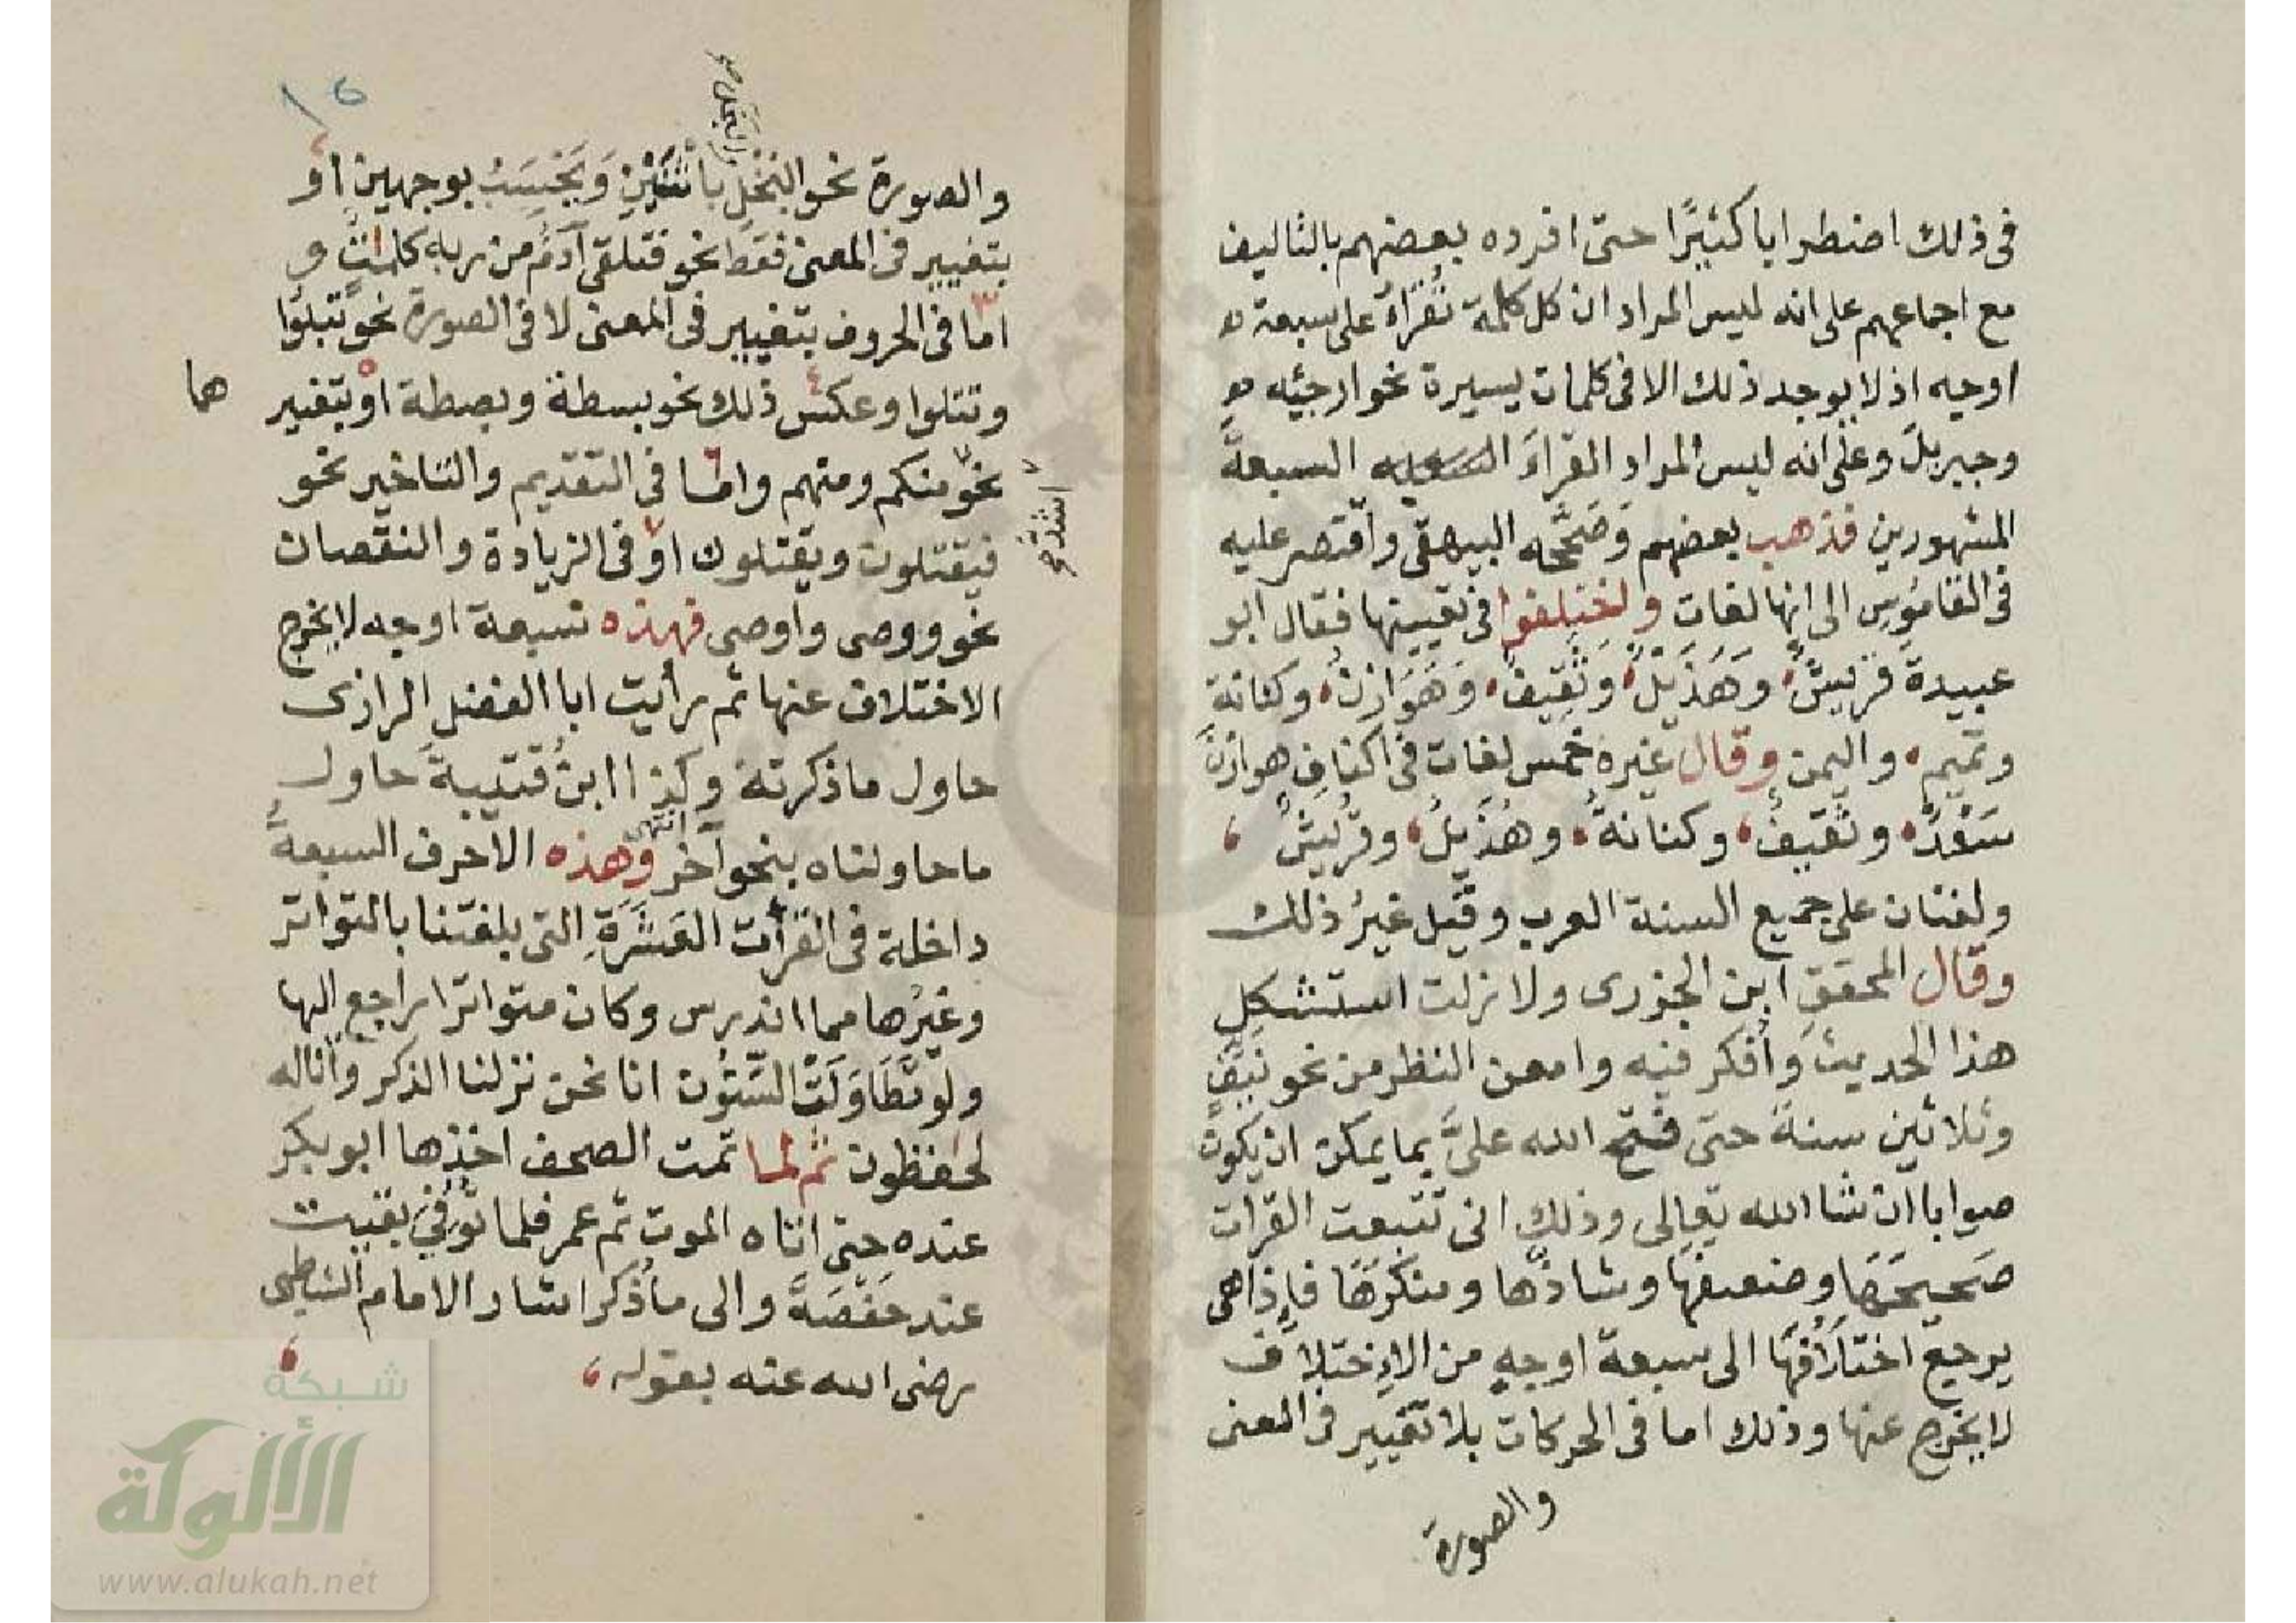 فى ذلك اضطرابا كثيرًا حتى افرده بعضهم بالتاليف
مع اجماعهم على انه ليس المراد ان كل كلمة تُقرَأ على سبعة
اوجه اذ لا يوجد ذلك الا فى كلمات يسيرة نحو ارجئه
وجبريل وعلى انه ليس المراد القراءَ السبعةَ
المشهورين فذهب بعضهم وَصَحَّحه البيهقى واقتصر عليه
فى القامُوس الى انها لغات واختلفوا فى تعيينها فقال ابو
عبيدة قريشٌ، وَهُذَيْلٌ، وَثَقِيفٌ، وَهَوَازِنُ، وكنانة
وتميم، واليمن وقال غيره خمس لغات فى اكنافِ هوازنَ
سَعْدٌ، وثَقيفٌ، وكنانةُ، وهُذَيلٌ، وقُرَيشٌ،
ولغتان على جميع السنة العرب وقيل غيرُ ذلك
وقال المحقق ابن الجزرى ولا زلت استشكل
هذا الحديثَ وَأُفكر فيه وامعن النظر من نحو نَيِّفٍ
وثلاثين سنةً حتى فتح الله علىَّ بما يمكن ان يكون
صوابا ان شا الله تعالى وذلك انى تتبعت القرات
صَحيحَهَا وضعيفَها وشاذَّها ومنكرَهَا فإذا هى
يرجع اختلافُهَا الى سبعة اوجهٍ من الاِختلاف
لا يخرج عنها وذلك اما فى الحركات بلا تغيير فى المعنى
والصورة
١٦
والصورة نحو البُخْلِ باثنَيْنِ وَيَحْسَبُ بوجهين أو
بتغيير فى المعنى فقط نحو فتلقى آدمُ من ربه كلمتٍ و
امّا فى الحروف بتغيير فى المعنى لا فى الصورة نحو تبلوا
وتتلوا وعكس ذلك نحو بسطة وبصطة او بتغيير
هما
نحو منكم ومنهم وامّا فى التقديم والتاخير نحو
اشدّ صح
فيقتلون ويقتلون او فى الزيادة والنقصان
نحو ووصى واوصى فهذه سبعة اوجه لا يخرج
الاختلاف عنها ثم رأيت ابا الفضل الرازى
حاول ما ذكرته وكذا ابنُ قتيبةَ حاول
ما حاولناه بنحو آخر انتهى وهذه الاحرف السبعةُ
داخلة فى القرأت العَشَرَةِ التى بلغتنا بالتواتر
وغيرُها مما اندرس وكان متواترا راجع اليها
ولو تَطَاوَلَتْ السِّنُون انا نحن نزلنا الذكر وانا له
لحفظون ثم لما تمت الصحف اخذها ابو بكر
عنده حتى اتاه الموت ثم عمر فلما تُوُفِّىَ بقيت
عند حَفْصَةَ والى ما ذُكر اشار الامام الشاطبى
رضى الله عنه بقوله،
شبكة
الألوكة
www.alukah.net